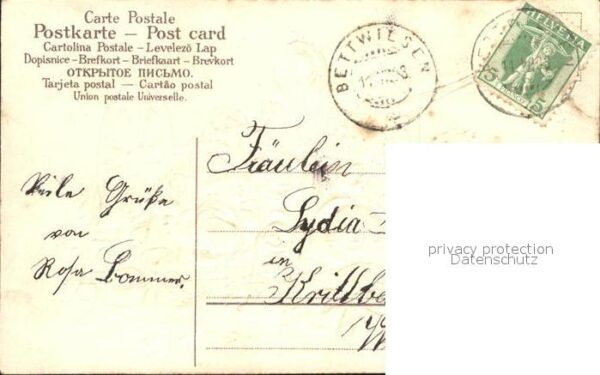 Carte Postale
Postkarte — Post card
Cartolina Postale - Levelező Lap
Dopisnice - Brefkort - Briefkaart - Brevkort
ОТКРЫТОЕ ПИСЬМО.
Tarjeta postal — Cartão postal
Union postale Universelle.
BETTWIESEN
HELVETIA
5 5
FRANCO
Fräulein
Lydia
in
Viele Grüße
von
Rosa Bommer.
privacy protection
Datenschutz